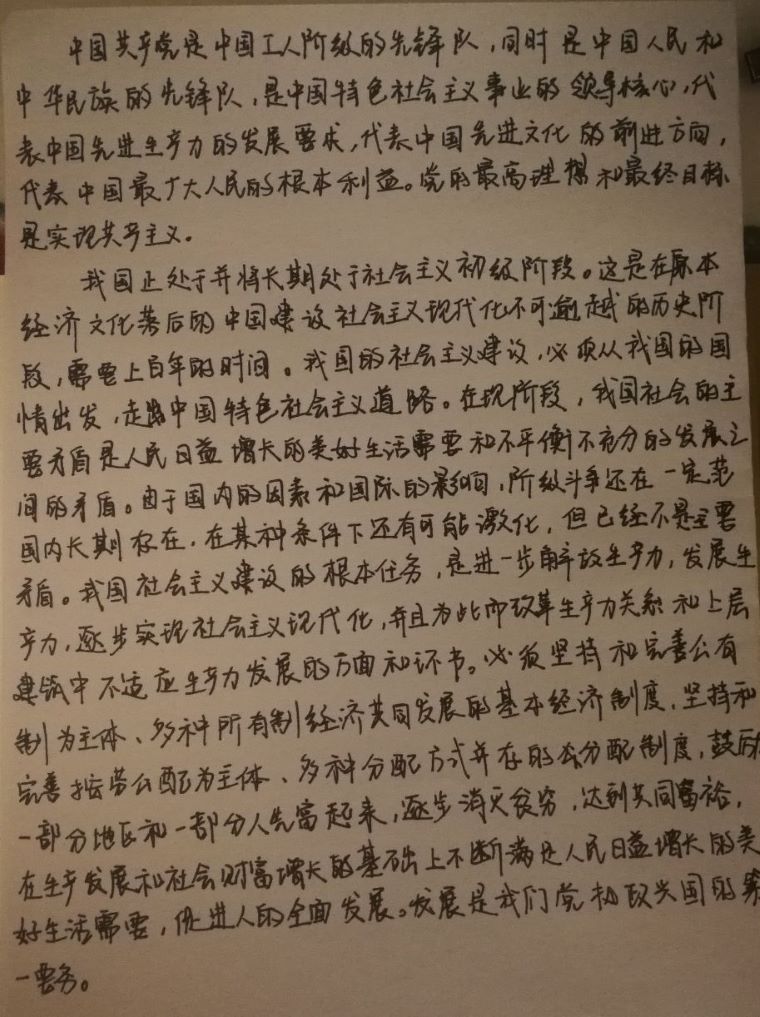 中国共产党是中国工人阶级的先锋队，同时是中国人民和
中华民族的先锋队，是中国特色社会主义事业的领导核心，代
表中国先进生产力的发展要求，代表中国先进文化的前进方向，
代表中国最广大人民的根本利益。党的最高理想和最终目标
是实现共产主义。
我国正处于并将长期处于社会主义初级阶段。这是在原本
经济文化落后的中国建设社会主义现代化不可逾越的历史阶
段，需要上百年的时间。我国的社会主义建设，必须从我国的国
情出发，走中国特色社会主义道路。在现阶段，我国社会的主
要矛盾是人民日益增长的美好生活需要和不平衡不充分的发展之
间的矛盾。由于国内的因素和国际的影响，阶级斗争还在一定范
围内长期存在，在某种条件下还有可能激化，但已经不是主要
矛盾。我国社会主义建设的根本任务，是进一步解放生产力，发展生
产力，逐步实现社会主义现代化，并且为此而改革生产力关系和上层
建筑中不适应生产力发展的方面和环节。必须坚持和完善公有
制为主体、多种所有制经济共同发展的基本经济制度，坚持和
完善按劳分配为主体、多种分配方式并存的分配制度，鼓励
一部分地区和一部分人先富起来，逐步消灭贫穷，达到共同富裕，
在生产发展和社会财富增长的基础上不断满足人民日益增长的美
好生活需要，促进人的全面发展。发展是我们党执政兴国的第
一要务。